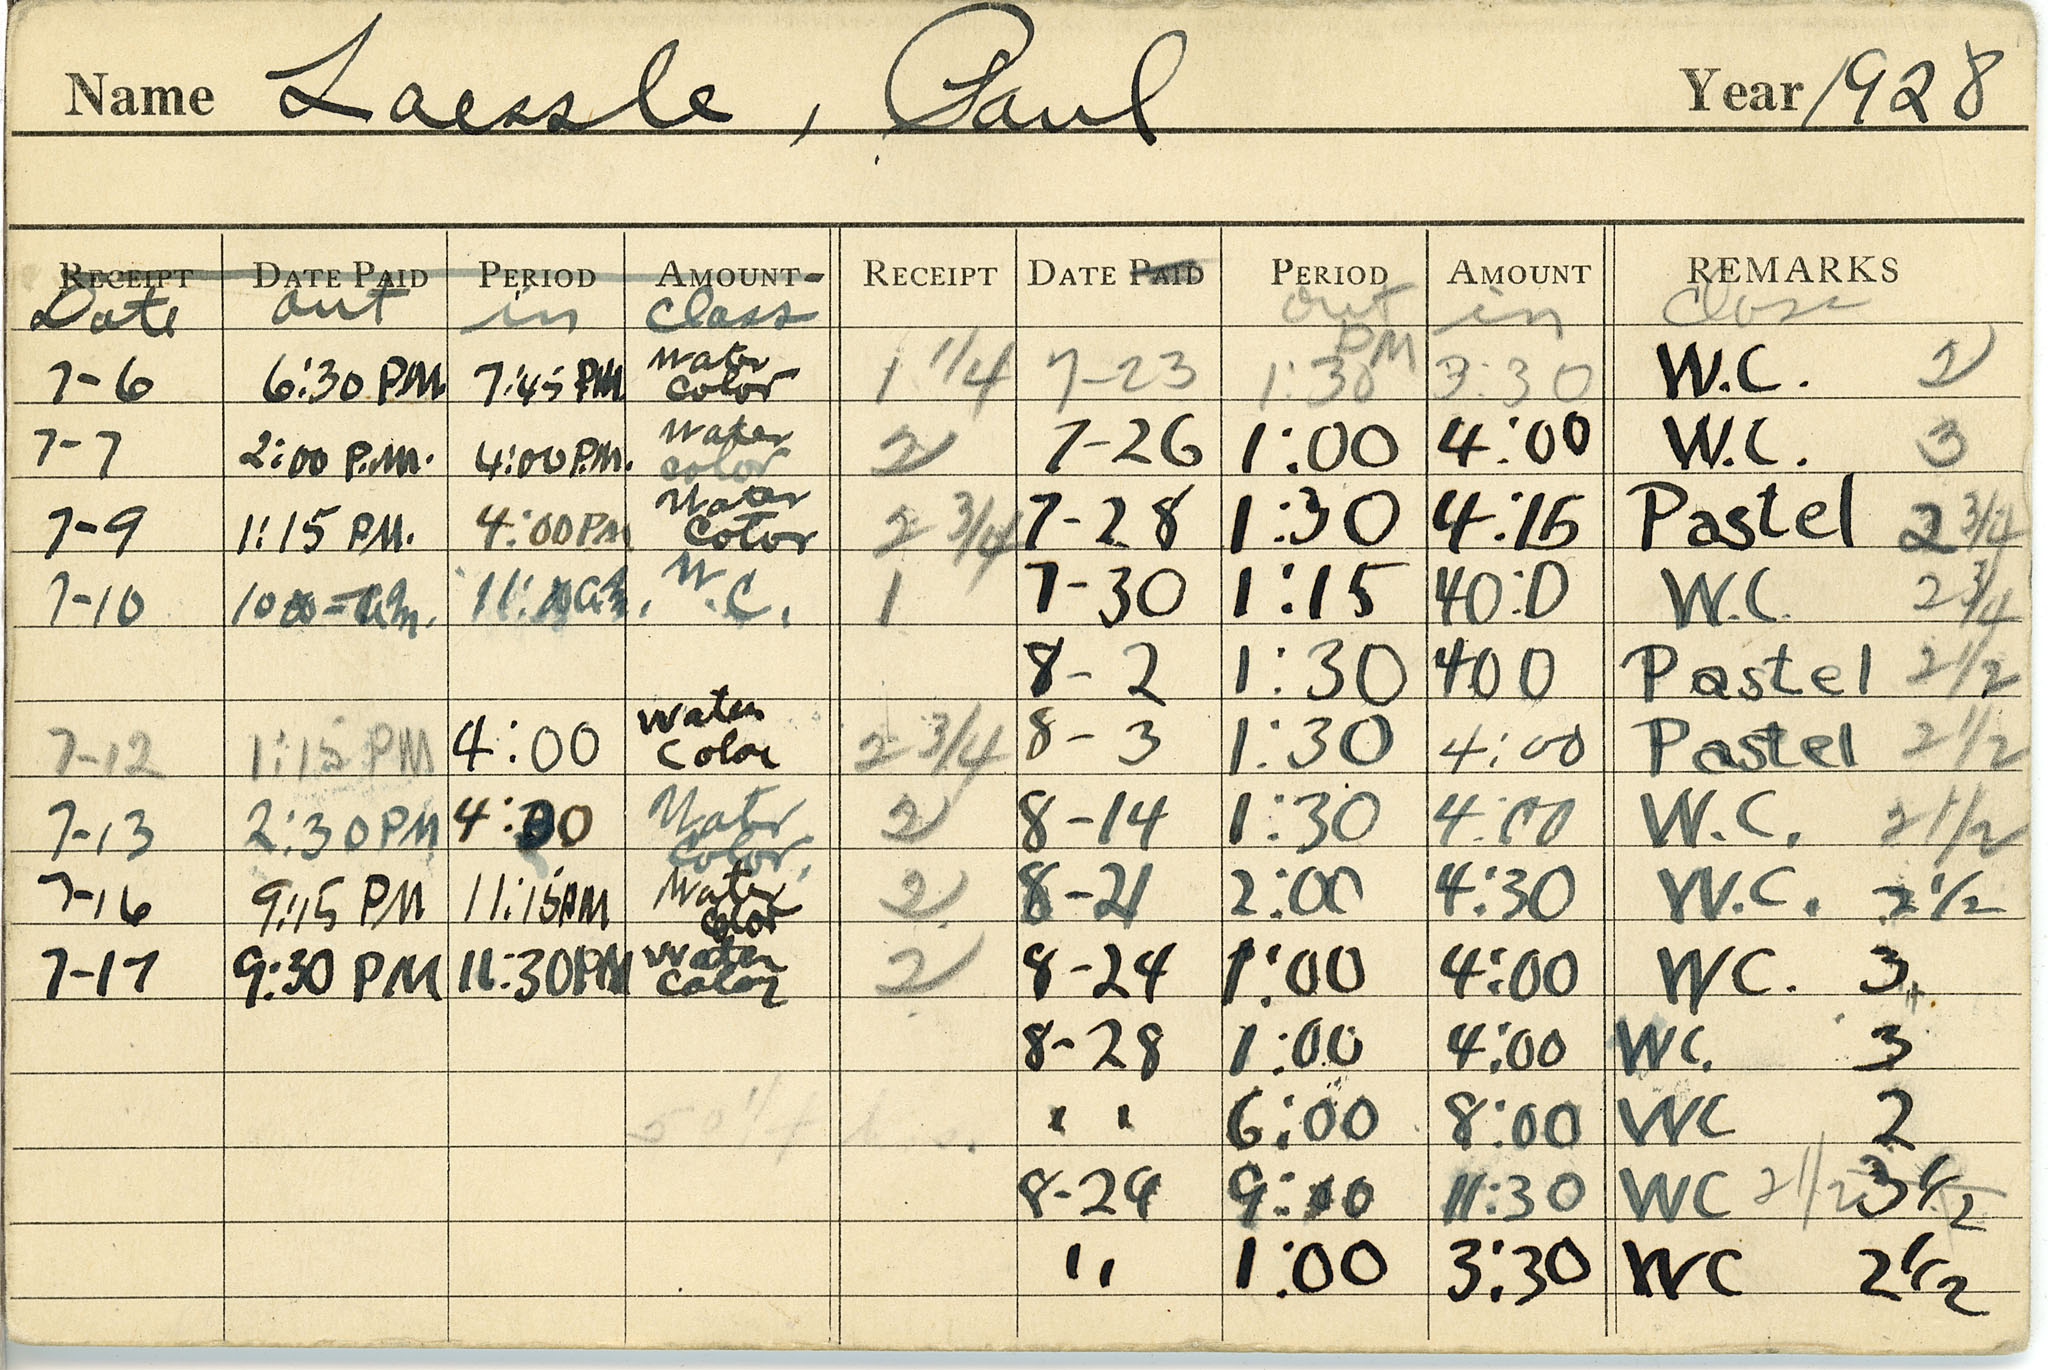 Name Laessle, Paul Year 1928
RECEIPT DATE PAID PERIOD AMOUNT RECEIPT DATE PAID PERIOD AMOUNT REMARKS
Date out in class out in Class
PM
7-6 6:30 PM 7:45 PM Water Color 1 1/4 7-23 1:30 3:30 W.C. 2
7-7 2:00 P.M. 4:00 P.M. Water Color 2 7-26 1:00 4:00 W.C. 3
7-9 1:15 PM. 4:00 PM Water Color 2 3/4 7-28 1:30 4:15 Pastel 2 3/4
7-10 11: W.C. 1 7-30 1:15 40:0 W.C. 2 3/4
8-2 1:30 400 Pastel 2 1/2
7-12 1:15 PM 4:00 Water Color 2 3/4 8-3 1:30 4:00 Pastel 2 1/2
7-13 2:30 PM 4:30 Water Color, 2 8-14 1:30 4:00 W.C. 2 1/2
7-16 9:15 PM 11:15 PM Water Color 2 8-21 2:00 4:30 W.C. 2 1/2
7-17 9:30 PM 11:30 PM Water Color 2 8-24 1:00 4:00 WC. 3
8-28 1:00 4:00 WC. 3
50 1/4 hrs. " " 6:00 8:00 WC 2
8-29 9:00 11:30 WC 2 1/2 3 1/2
" 1:00 3:30 WC 2 1/2